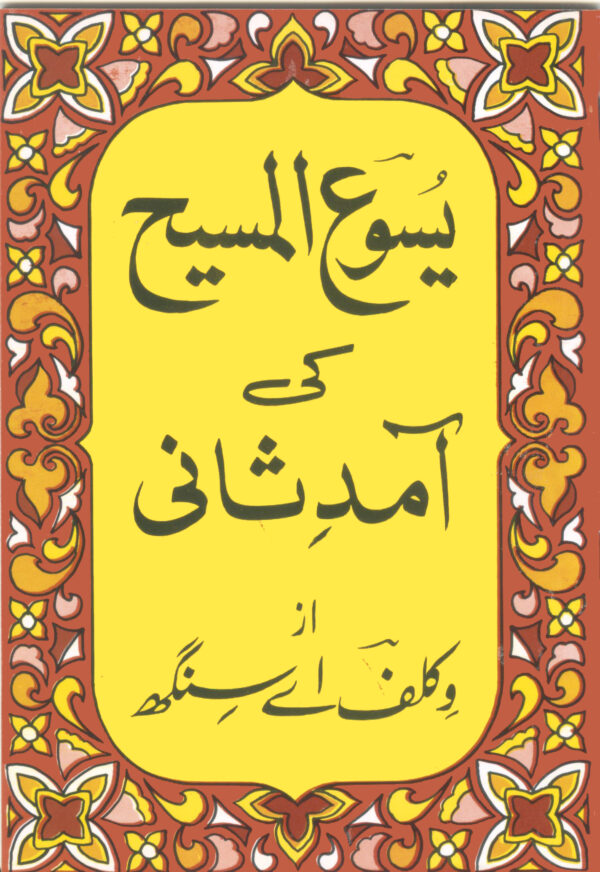 یُسوعؔ المسیح
کی
آمدِ ثانی
از
وِکلفؔ اے سِنگھ